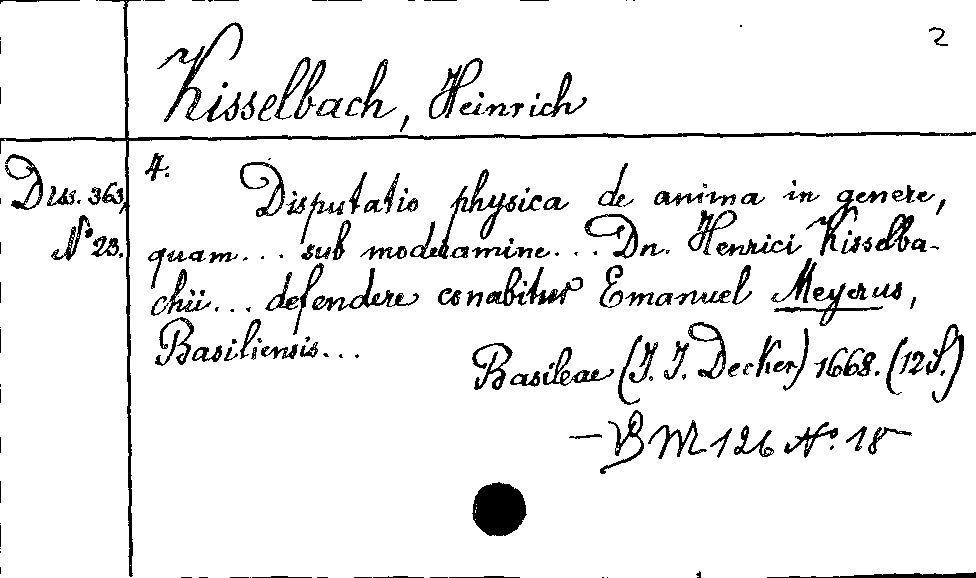 2
Kisselbach, Heinrich
Diss. 363,
N° 23.
4.
Disputatio physica de anima in genere,
quam... sub moderamine... Dn. Henrici Kisselba-
chii... defendere conabitur Emanuel Meyerus,
Basiliensis...
Basileae (J. J. Decker) 1668. (12 S.)
— BM 126 N° 18 —